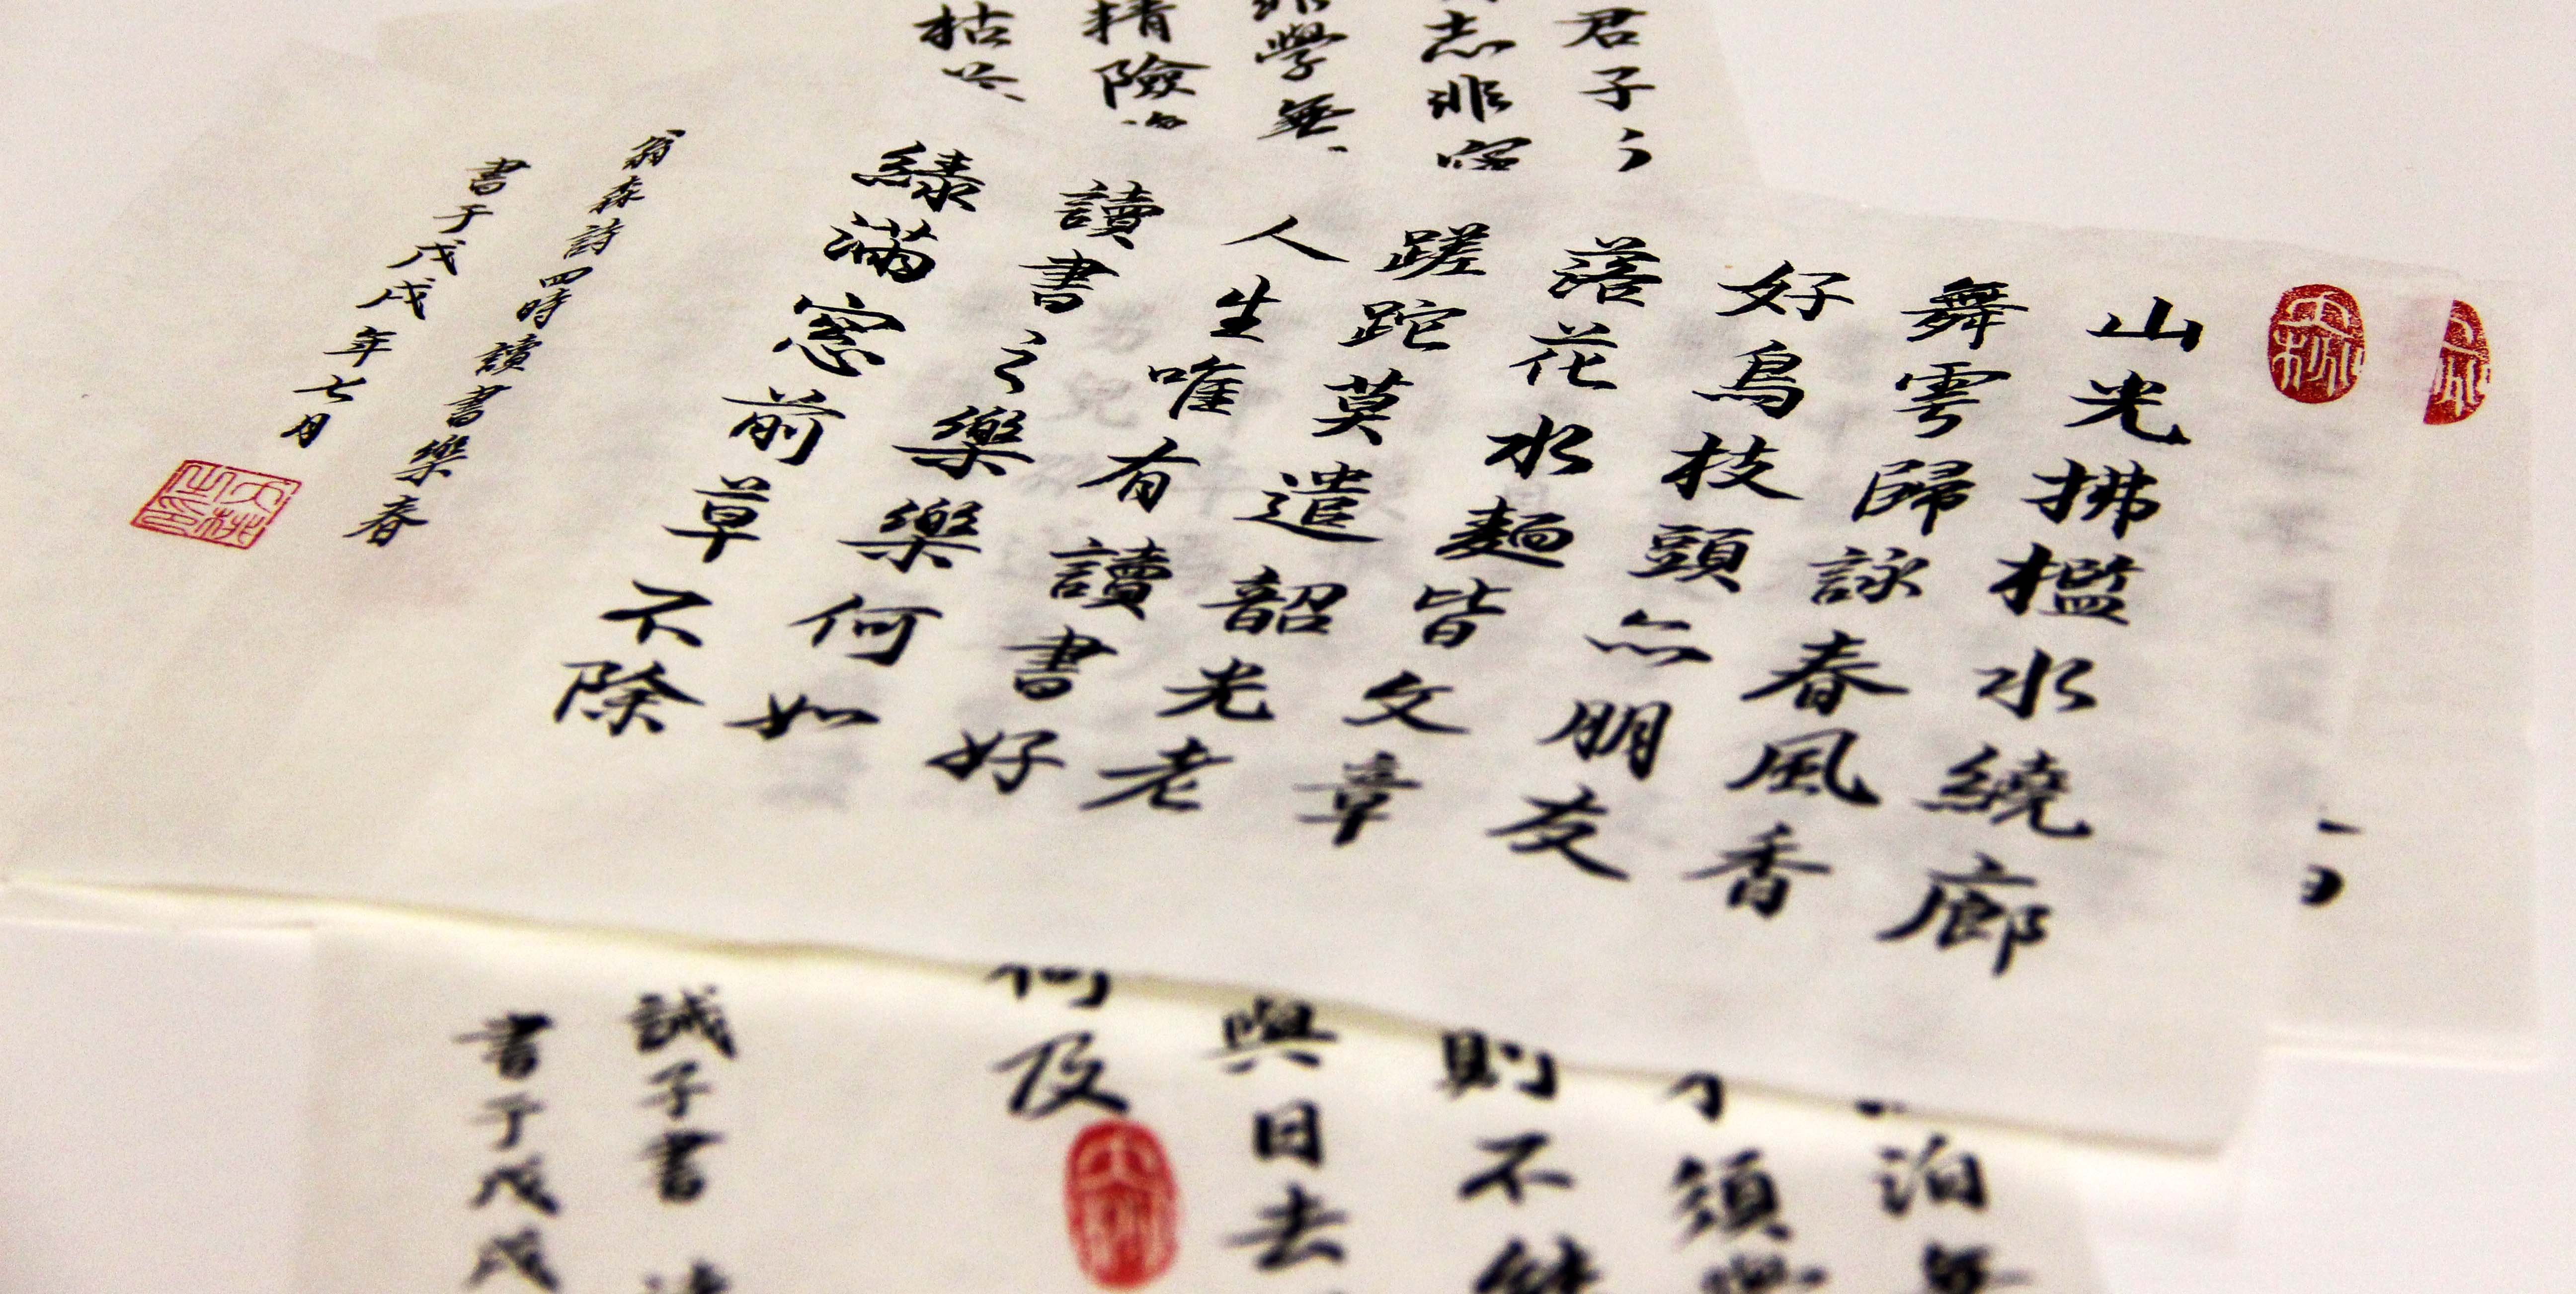 君子
志非
學無
精險
枯
山光拂檻水繞廊
舞雩歸詠春風香
好鳥枝頭亦朋友
落花水麵皆文章
蹉跎莫遣韶光老
人生唯有讀書好
讀書之樂樂何如
綠滿窓前草不除
翁森詩四時讀書樂春
書于戊戌年七月
泊
須
則不能
與日去
何及
誡子書
書于戊戌